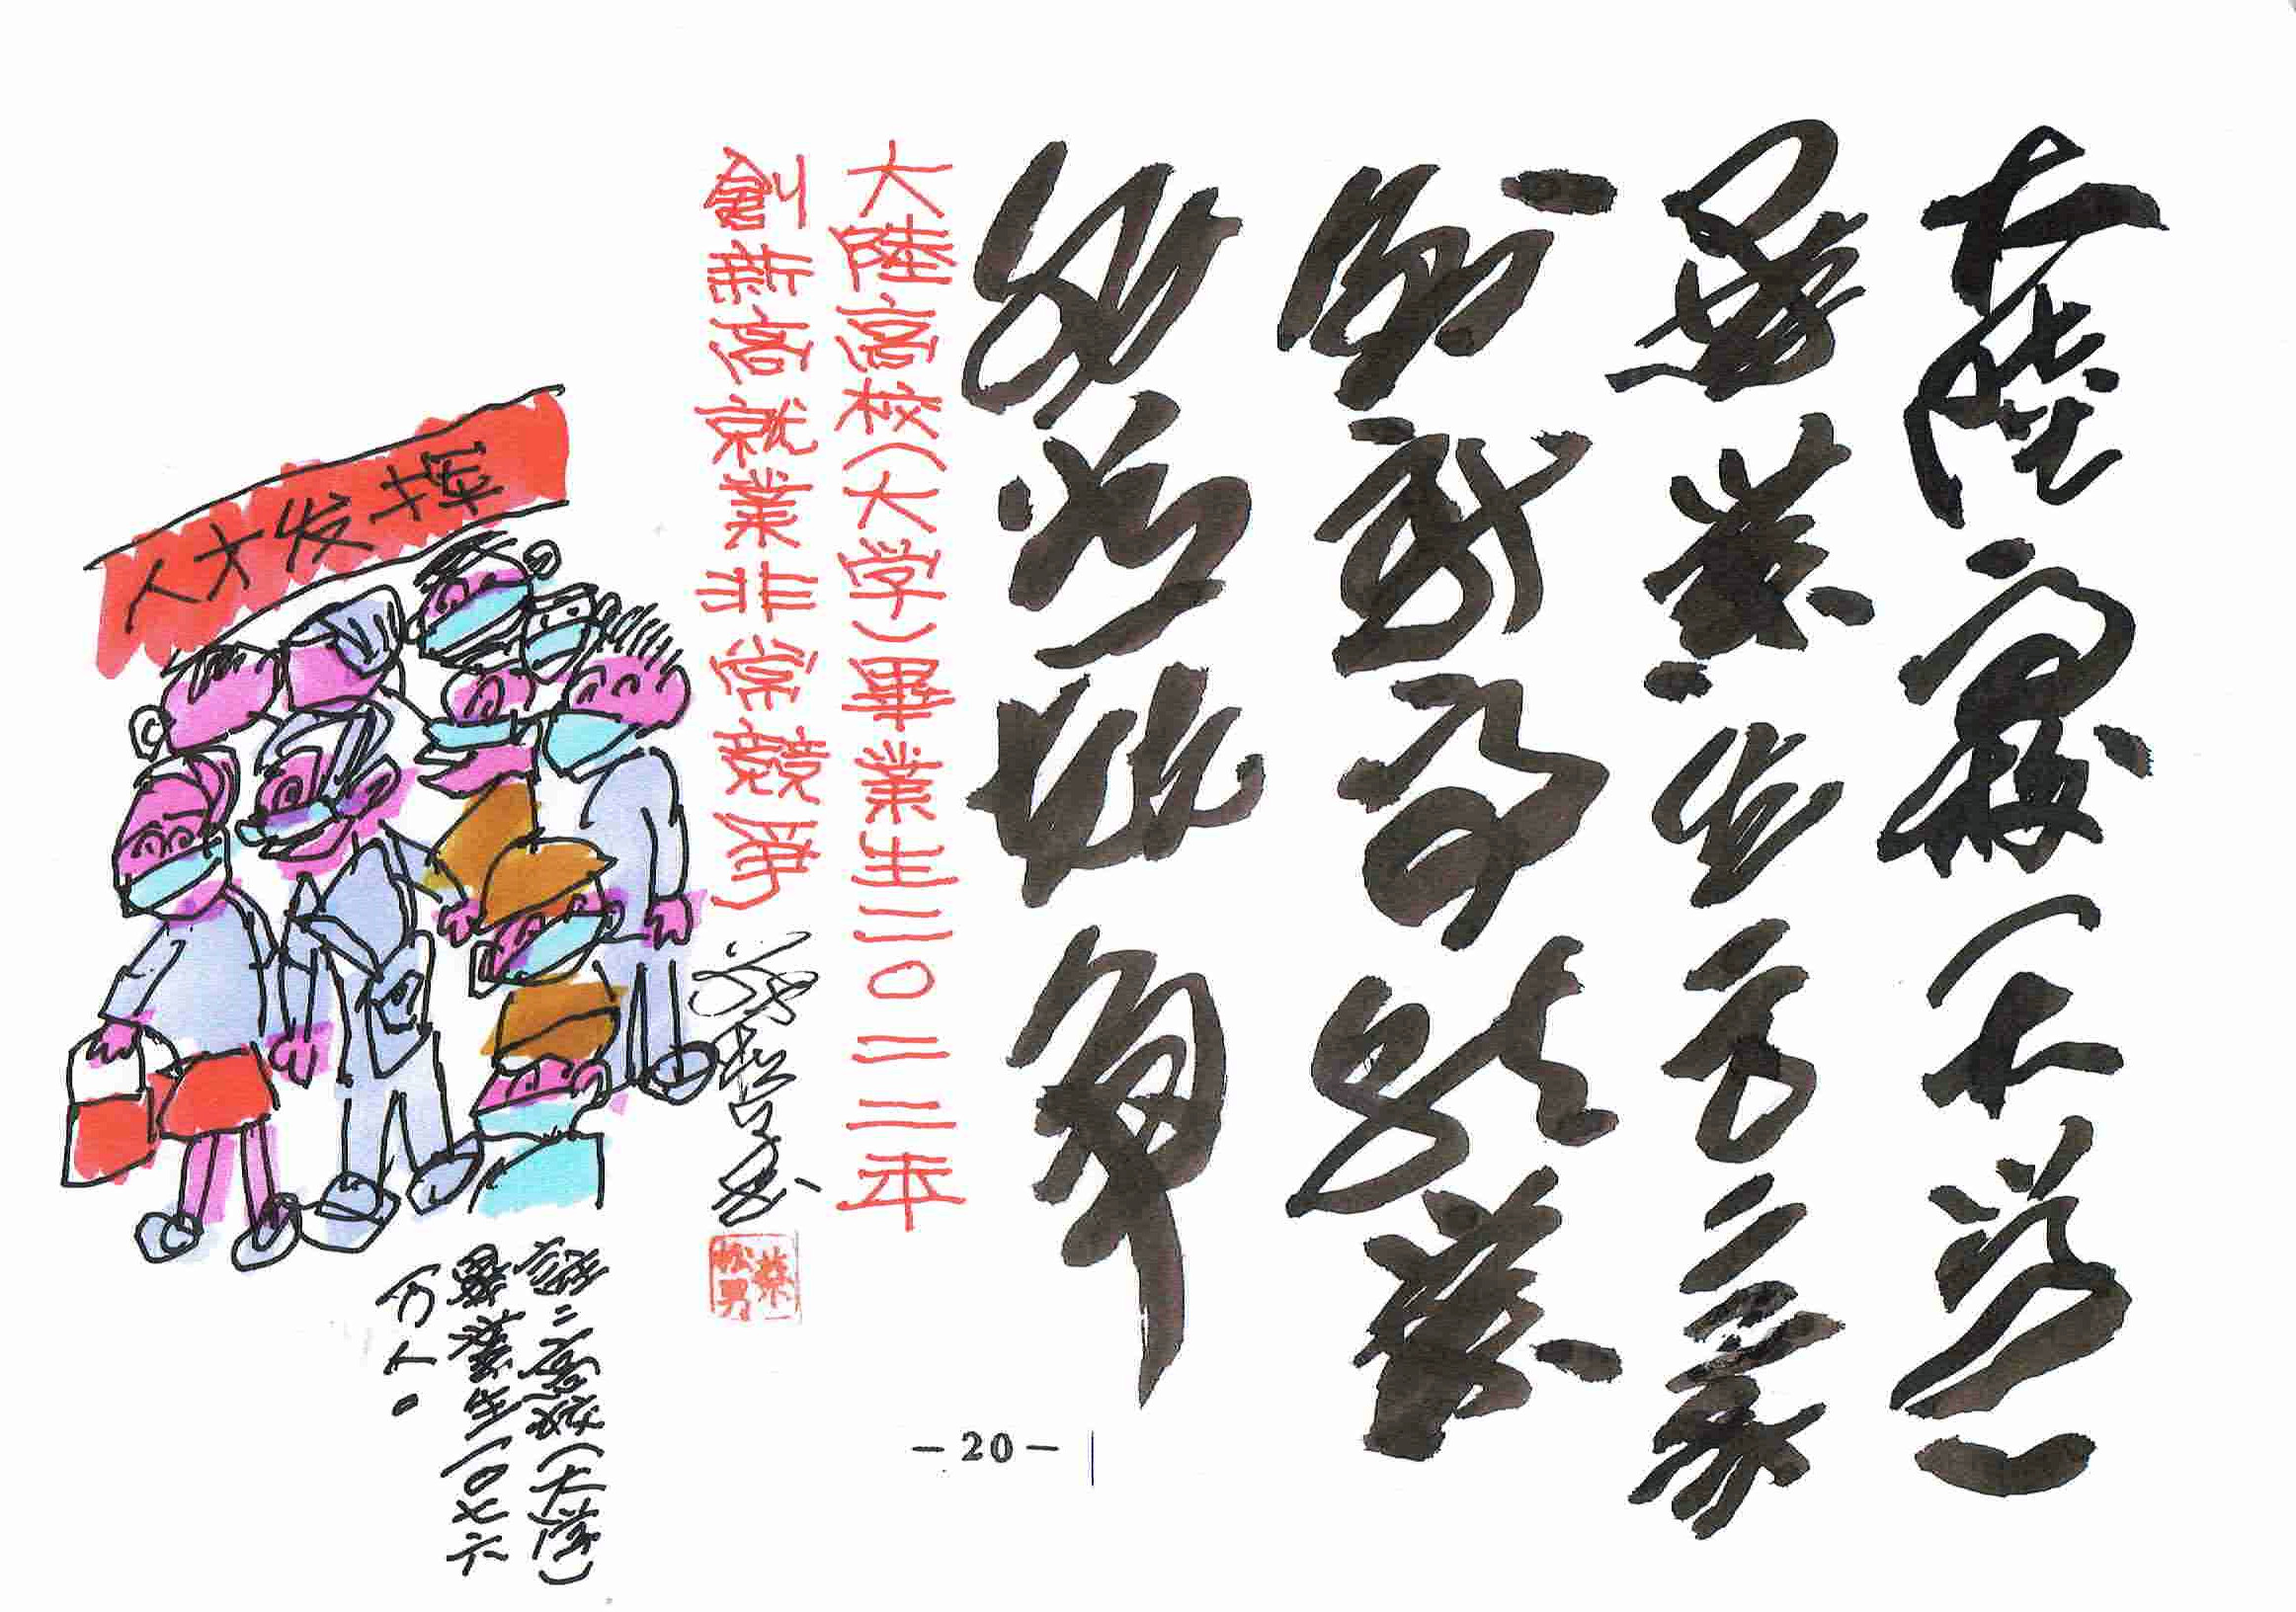 大陸高校(大学)
畢業生二〇二二年
創新高就業
非常競爭
大陸高校(大学)畢業生二〇二二年
創新高就業非常競爭
蔡松男書
蔡松男
人大发挥
註:高校(大学)
畢業生一〇七六
万人。
-20-